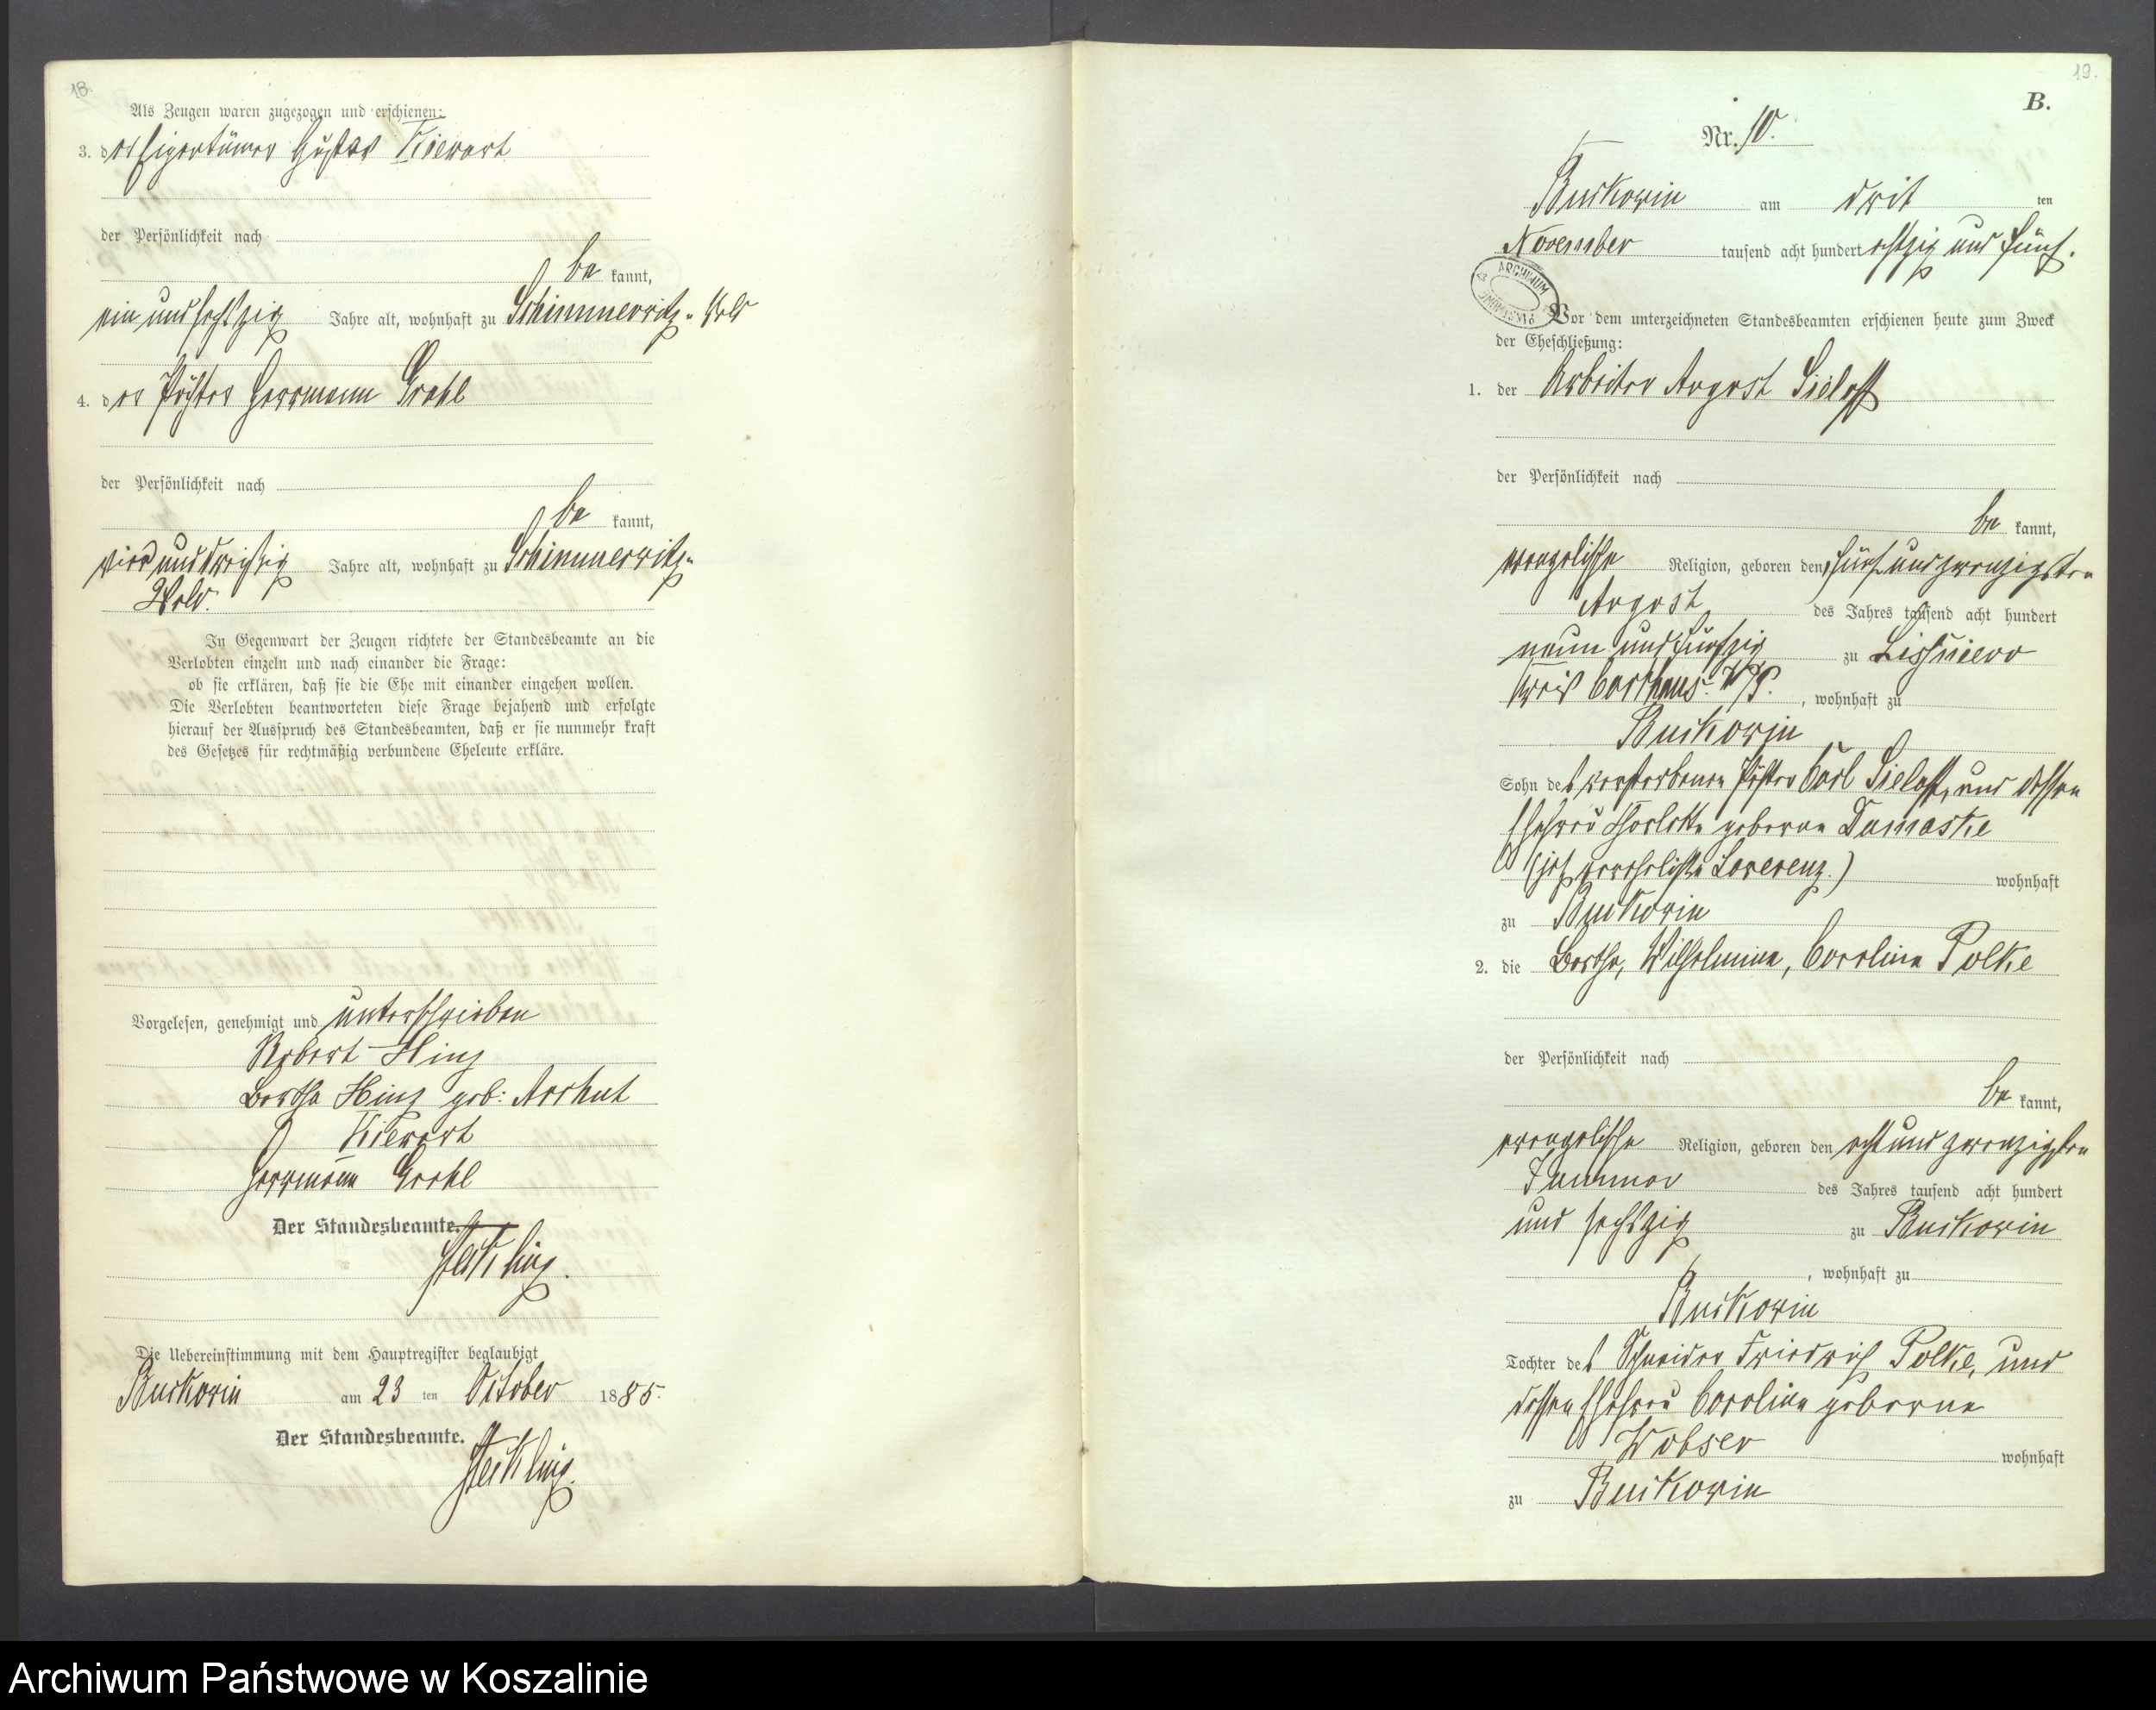 18.
Als Zeugen waren zugezogen und erschienen:
3. der Eigentümer Gustav Kiewert
der Persönlichkeit nach
be kannt,
ein und sechszig Jahre alt, wohnhaft zu Schimmerwitz-Wald
4. der Pächter Herrmann Grohl
der Persönlichkeit nach
be kannt,
vier und dreißig Jahre alt, wohnhaft zu Schimmerwitz-
Wald.
In Gegenwart der Zeugen richtete der Standesbeamte an die
Verlobten einzeln und nach einander die Frage:
ob sie erklären, daß sie die Ehe mit einander eingehen wollen.
Die Verlobten beantworteten diese Frage bejahend und erfolgte
hierauf der Ausspruch des Standesbeamten, daß er sie nunmehr kraft
des Gesetzes für rechtmäßig verbundene Eheleute erkläre.
Vorgelesen, genehmigt und unterschrieben
Robert Hinz
Bertha Hinz geb: Aschut
Kiewert
Herrmann Grohl
Der Standesbeamte.
Heckling.
Die Uebereinstimmung mit dem Hauptregister beglaubigt
Buckowin am 23 ten October 1885.
Der Standesbeamte.
Heckling.
19.
B.
Nr. 10.
Buckowin am drit ten
November tausend acht hundert achtzig und fünf.
ARCHIWUM
Vor dem unterzeichneten Standesbeamten erschienen heute zum Zweck
der Eheschließung:
1. der Arbeiter August Sielaff
der Persönlichkeit nach
be kannt,
evangelische Religion, geboren den fünf und zwanzigsten
August des Jahres tausend acht hundert
neun und fünfzig zu Lissniewo
Kreis Carthaus W/P. , wohnhaft zu
Buckowin
Sohn des verstorbenen Pächter Carl Sielaff, und dessen
Ehefrau Charlotte geborne Damaske
(jetz verehelichte Lawerenz.) wohnhaft
zu Buckowin
2. die Bertha, Wilhelmine, Caroline Polke
der Persönlichkeit nach
be kannt,
evangelische Religion, geboren den acht und zwanzigsten
Januar des Jahres tausend acht hundert
und sechszig zu Buckowin
, wohnhaft zu
Buckowin
Tochter des Schneider Friedrich Polke, und
dessen Ehefrau Caroline geborne
Wobser wohnhaft
zu Buckowin
Archiwum Państwowe w Koszalinie